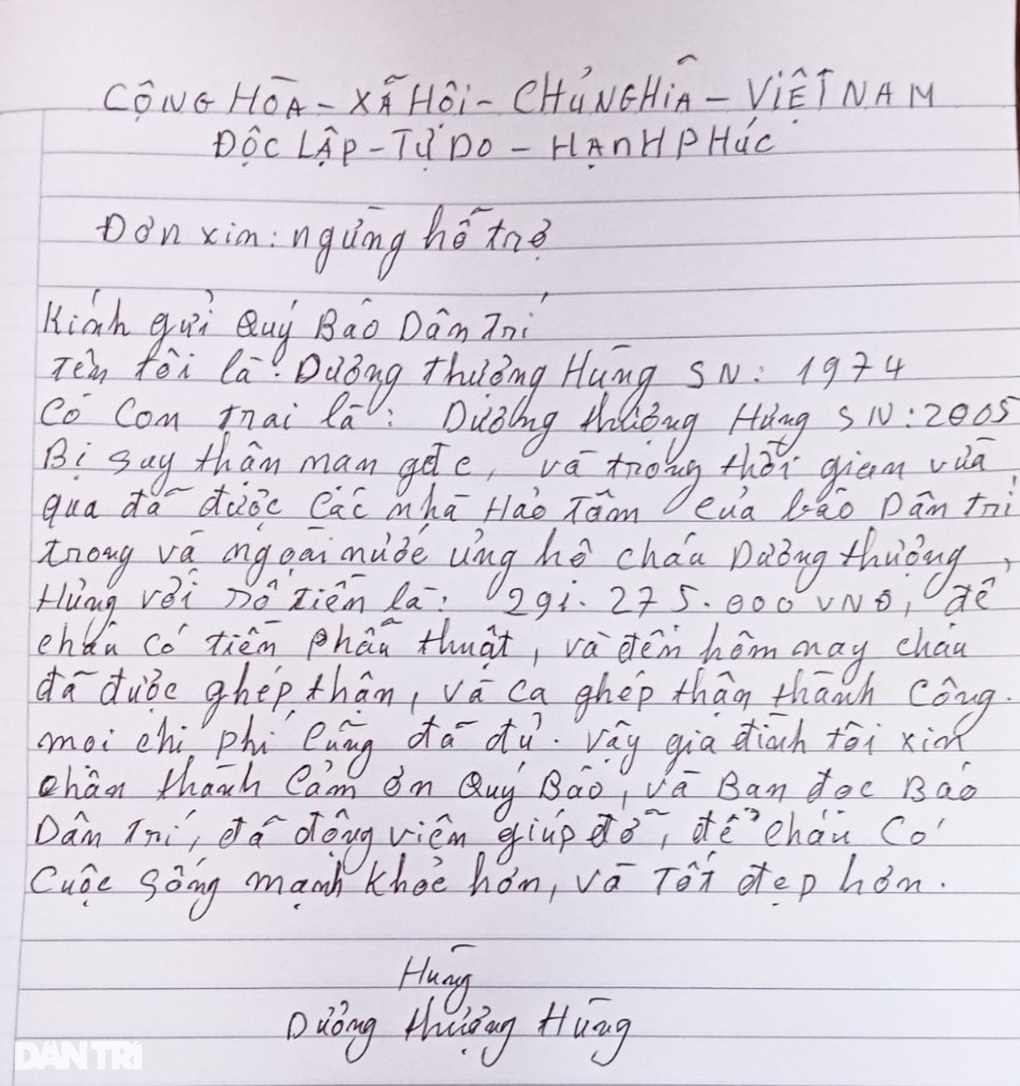 CỘNG HÒA - XÃ HỘI - CHỦ NGHĨA - VIỆT NAM
ĐỘC LẬP - TỰ DO - HẠNH PHÚC
Đơn xin: ngừng hỗ trợ
Kính gửi Quý Báo Dân Trí
Tên tôi là: Dương Thượng Hùng SN: 1974
Có con trai là: Dương Thượng Hưng SN: 2005
Bị suy thận mạn gđ c, và trong thời gian vừa
qua đã được các nhà Hảo Tâm của báo Dân trí
trong và ngoài nước ủng hộ cháu Dương thượng
Hưng với số tiền là: 291.275.000 VNĐ, để
cháu có tiền phẫu thuật, và đến hôm nay cháu
đã được ghép thận, và ca ghép thận thành công.
mọi chi phí cũng đã đủ. Vậy gia đình tôi xin
chân thành cảm ơn Quý Báo, và Bạn đọc Báo
Dân Trí, đã động viên giúp đỡ, để cháu có
cuộc sống mạnh khỏe hơn, và Tốt đẹp hơn.
Hùng
Dương Thượng Hùng
DÂN TRÍ